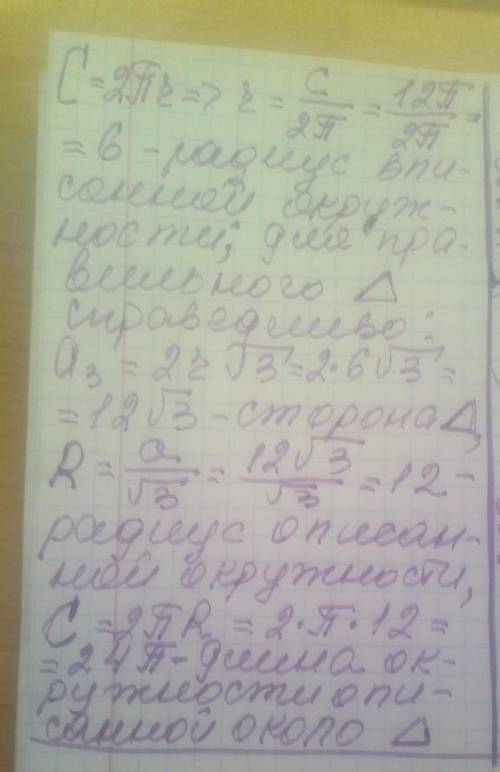 C = 2πr => r = C/2π = 12π/2π =
= 6 - радиус впи-
санной окруж-
ности; для пра-
вильного △
справедливо:
a₃ = 2r√3 = 2·6√3 =
= 12√3 - сторона △,
R = a/√3 = 12√3/√3 = 12 -
радиус описан-
ной окружности,
C = 2πR = 2·π·12 =
= 24π - длина ок-
ружности опи-
санной около △